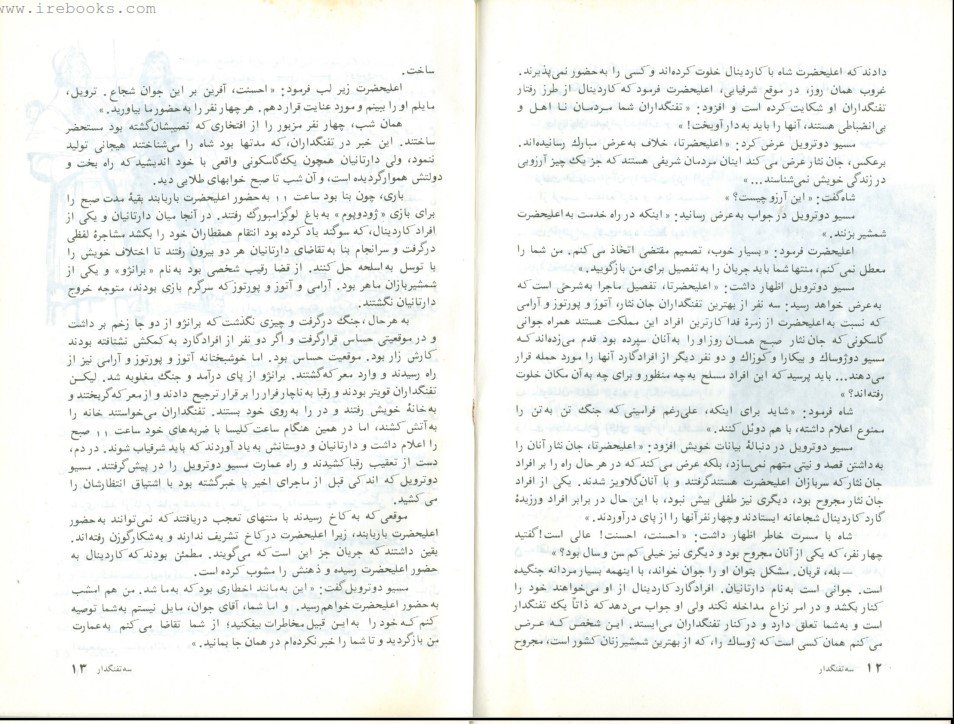 www.irebooks.com
دادند که اعلیحضرت شاه با کاردینال خلوت کرده‌اند و کسی را به حضور نمی‌پذیرند.
غروب همان روز، در موقع شرفیابی، اعلیحضرت فرمود که کاردینال از طرز رفتار
تفنگداران او شکایت کرده است و افزود: «تفنگداران شما مردمان نا اهل و
بی‌انضباطی هستند، آنها را باید به دار آویخت!»
مسیو دوترویل عرض کرد: «اعلیحضرتا، خلاف به عرض مبارک رسانیده‌اند.
برعکس، جان نثار عرض می کند اینان مردمان شریفی هستند که جز یک چیز آرزویی
در زندگی خویش نمی‌شناسند...»
شاه گفت: «این آرزو چیست؟»
مسیو دوترویل در جواب به عرض رسانید: «اینکه در راه خدمت به اعلیحضرت
شمشیر بزنند.»
اعلیحضرت فرمود: «بسیار خوب، تصمیم مقتضی اتخاذ می کنم. من شما را
معطل نمی کنم، منتها شما باید جریان را به تفصیل برای من بازگویید.»
مسیو دوترویل اظهار داشت: «اعلیحضرتا، تفصیل ماجرا به شرحی است که
به عرض خواهد رسید: سه نفر از بهترین تفنگداران جان نثار، آتوز و پورتوز و آرامی
که نسبت به اعلیحضرت از زمرهٔ فداکارترین افراد این مملکت هستند همراه جوانی
گاسکونی که جان نثار صبح همان روز او را به آنان سپرده بود قدم می‌زدند که
مسیو دوژوساک و بیکارا و کوزاک و دو نفر دیگر از افرادگارد آنها را مورد حمله قرار
می‌دهند... باید پرسید که این افراد مسلح به چه منظور و برای چه به آن مکان خلوت
رفته‌اند؟»
شاه فرمود: «شاید برای اینکه، علی‌رغم فرامینی که جنگ تن به تن را
ممنوع اعلام داشته، با هم دوئل کنند.»
مسیو دوترویل در دنبالهٔ بیانات خویش افزود: «اعلیحضرتا، جان نثار آنان را
به داشتن قصد و نیتی متهم نمی‌سازد، بلکه عرض می کند که در هر حال راه را بر افراد
جان نثار که سربازان اعلیحضرت هستند گرفتند و با آنان گلاویز شدند. یکی از افراد
جان نثار مجروح بود، دیگری نیز طفلی بیش نبود، با این حال در برابر افراد ورزیدهٔ
گارد کاردینال شجاعانه ایستادند و چهار نفر آنها را از پای درآوردند.»
شاه با مسرت خاطر اظهار داشت: «احسنت، احسنت! عالی است! گفتید
چهار نفر، که یکی از آنان مجروح بود و دیگری نیز خیلی کم سن و سال بود؟»
— بله، قربان. مشکل بتوان او را جوان خواند، با اینهمه بسیار مردانه جنگیده
است. جوانی است به نام دارتانیان. افرادگارد کاردینال از او می‌خواهند خود را
کنار بکشد و در امر نزاع مداخله نکند ولی او جواب می‌دهد که ذاتاً یک تفنگدار
است و به شما تعلق دارد و در کنار تفنگداران می‌ایستد. این شخص که عرض
می کنم همان کسی است که ژوساک را، که از بهترین شمشیرزنان کشور است، مجروح
۱۲ سه تفنگدار
ساخت.
اعلیحضرت زیر لب فرمود: «احسنت، آفرین بر این جوان شجاع. ترویل،
مایلم او را ببینم و مورد عنایت قرار دهم. هر چهار نفر را به حضور ما بیاورید.»
همان شب، چهار نفر مزبور را از افتخاری که نصیبشان گشته بود مستحضر
ساختند. این خبر در تفنگداران، که مدتها بود شاه را می‌شناختند هیجانی تولید
ننمود، ولی دارتانیان همچون یک گاسکونی واقعی با خود اندیشید که راه بخت و
دولتش هموار گردیده است، و آن شب تا صبح خوابهای طلایی دید.
باری، چون بنا بود ساعت ۱۱ به حضور اعلیحضرت باریابند بقیهٔ مدت صبح را
برای بازی «ژودوپوم» به باغ لوگزامبورگ رفتند. در آنجا میان دارتانیان و یکی از
افراد کاردینال، که سوگند یاد کرده بود انتقام همقطاران خود را بکشد مشاجرهٔ لفظی
درگرفت و سرانجام بنا به تقاضای دارتانیان هر دو بیرون رفتند تا اختلاف خویش را
با توسل به اسلحه حل کنند. از قضا رقیب شخصی بود به نام «برانژو» و یکی از
شمشیربازان ماهر بود. آرامی و آتوز و پورتوز که سرگرم بازی بودند، متوجه خروج
دارتانیان نگشتند.
به هر حال، جنگ درگرفت و چیزی نگذشت که برانژو از دو جا زخم بر داشت
و در موقعیتی حساس قرار گرفت و اگر دو نفر از افراد گارد به کمکش نشتافته بودند
کارش زار بود. موقعیت حساس بود. اما خوشبختانه آتوز و پورتوز و آرامی نیز از
راه رسیدند و وارد معرکه گشتند. برانژو از پای درآمد و جنگ مغلوبه شد. لیکن
تفنگداران قویتر بودند و رقبا به ناچار فرار را بر قرار ترجیح دادند و از معرکه گریختند و
به خانهٔ خویش رفتند و در را به روی خود بستند. تفنگداران می‌خواستند خانه را
به آتش کشند، اما در همین هنگام ساعت کلیسا با ضربه‌های خود ساعت ۱۱ صبح
را اعلام داشت و دارتانیان و دوستانش به یاد آوردند که باید شرفیاب شوند. در دم،
دست از تعقیب رقبا کشیدند و راه عمارت مسیو دوترویل را در پیش گرفتند. مسیو
دوترویل که اندکی قبل از ماجرای اخیر با خبر گشته بود با اشتیاق انتظارشان را
می کشید.
موقعی که به کاخ رسیدند با منتهای تعجب دریافتند که نمی‌توانند به حضور
اعلیحضرت باریابند، زیرا اعلیحضرت در کاخ تشریف ندارند و به شکار گوزن رفته‌اند.
یقین داشتند که جریان جز این است که می‌گویند. مطمئن بودند که کاردینال به
حضور اعلیحضرت رسیده و ذهنش را مشوب کرده است.
مسیو دوترویل گفت: «این به مانند اخطاری بود که به ما شد. من هم امشب
به حضور اعلیحضرت خواهم رسید. و اما شما، آقای جوان، مایل نیستم به شما توصیه
کنم که خود را به این قبیل مخاطرات بیفکنید؛ از شما تقاضا می کنم به عمارت
من بازگردید و تا شما را خبر نکرده‌ام در همان جا بمانید.»
سه تفنگدار ۱۳